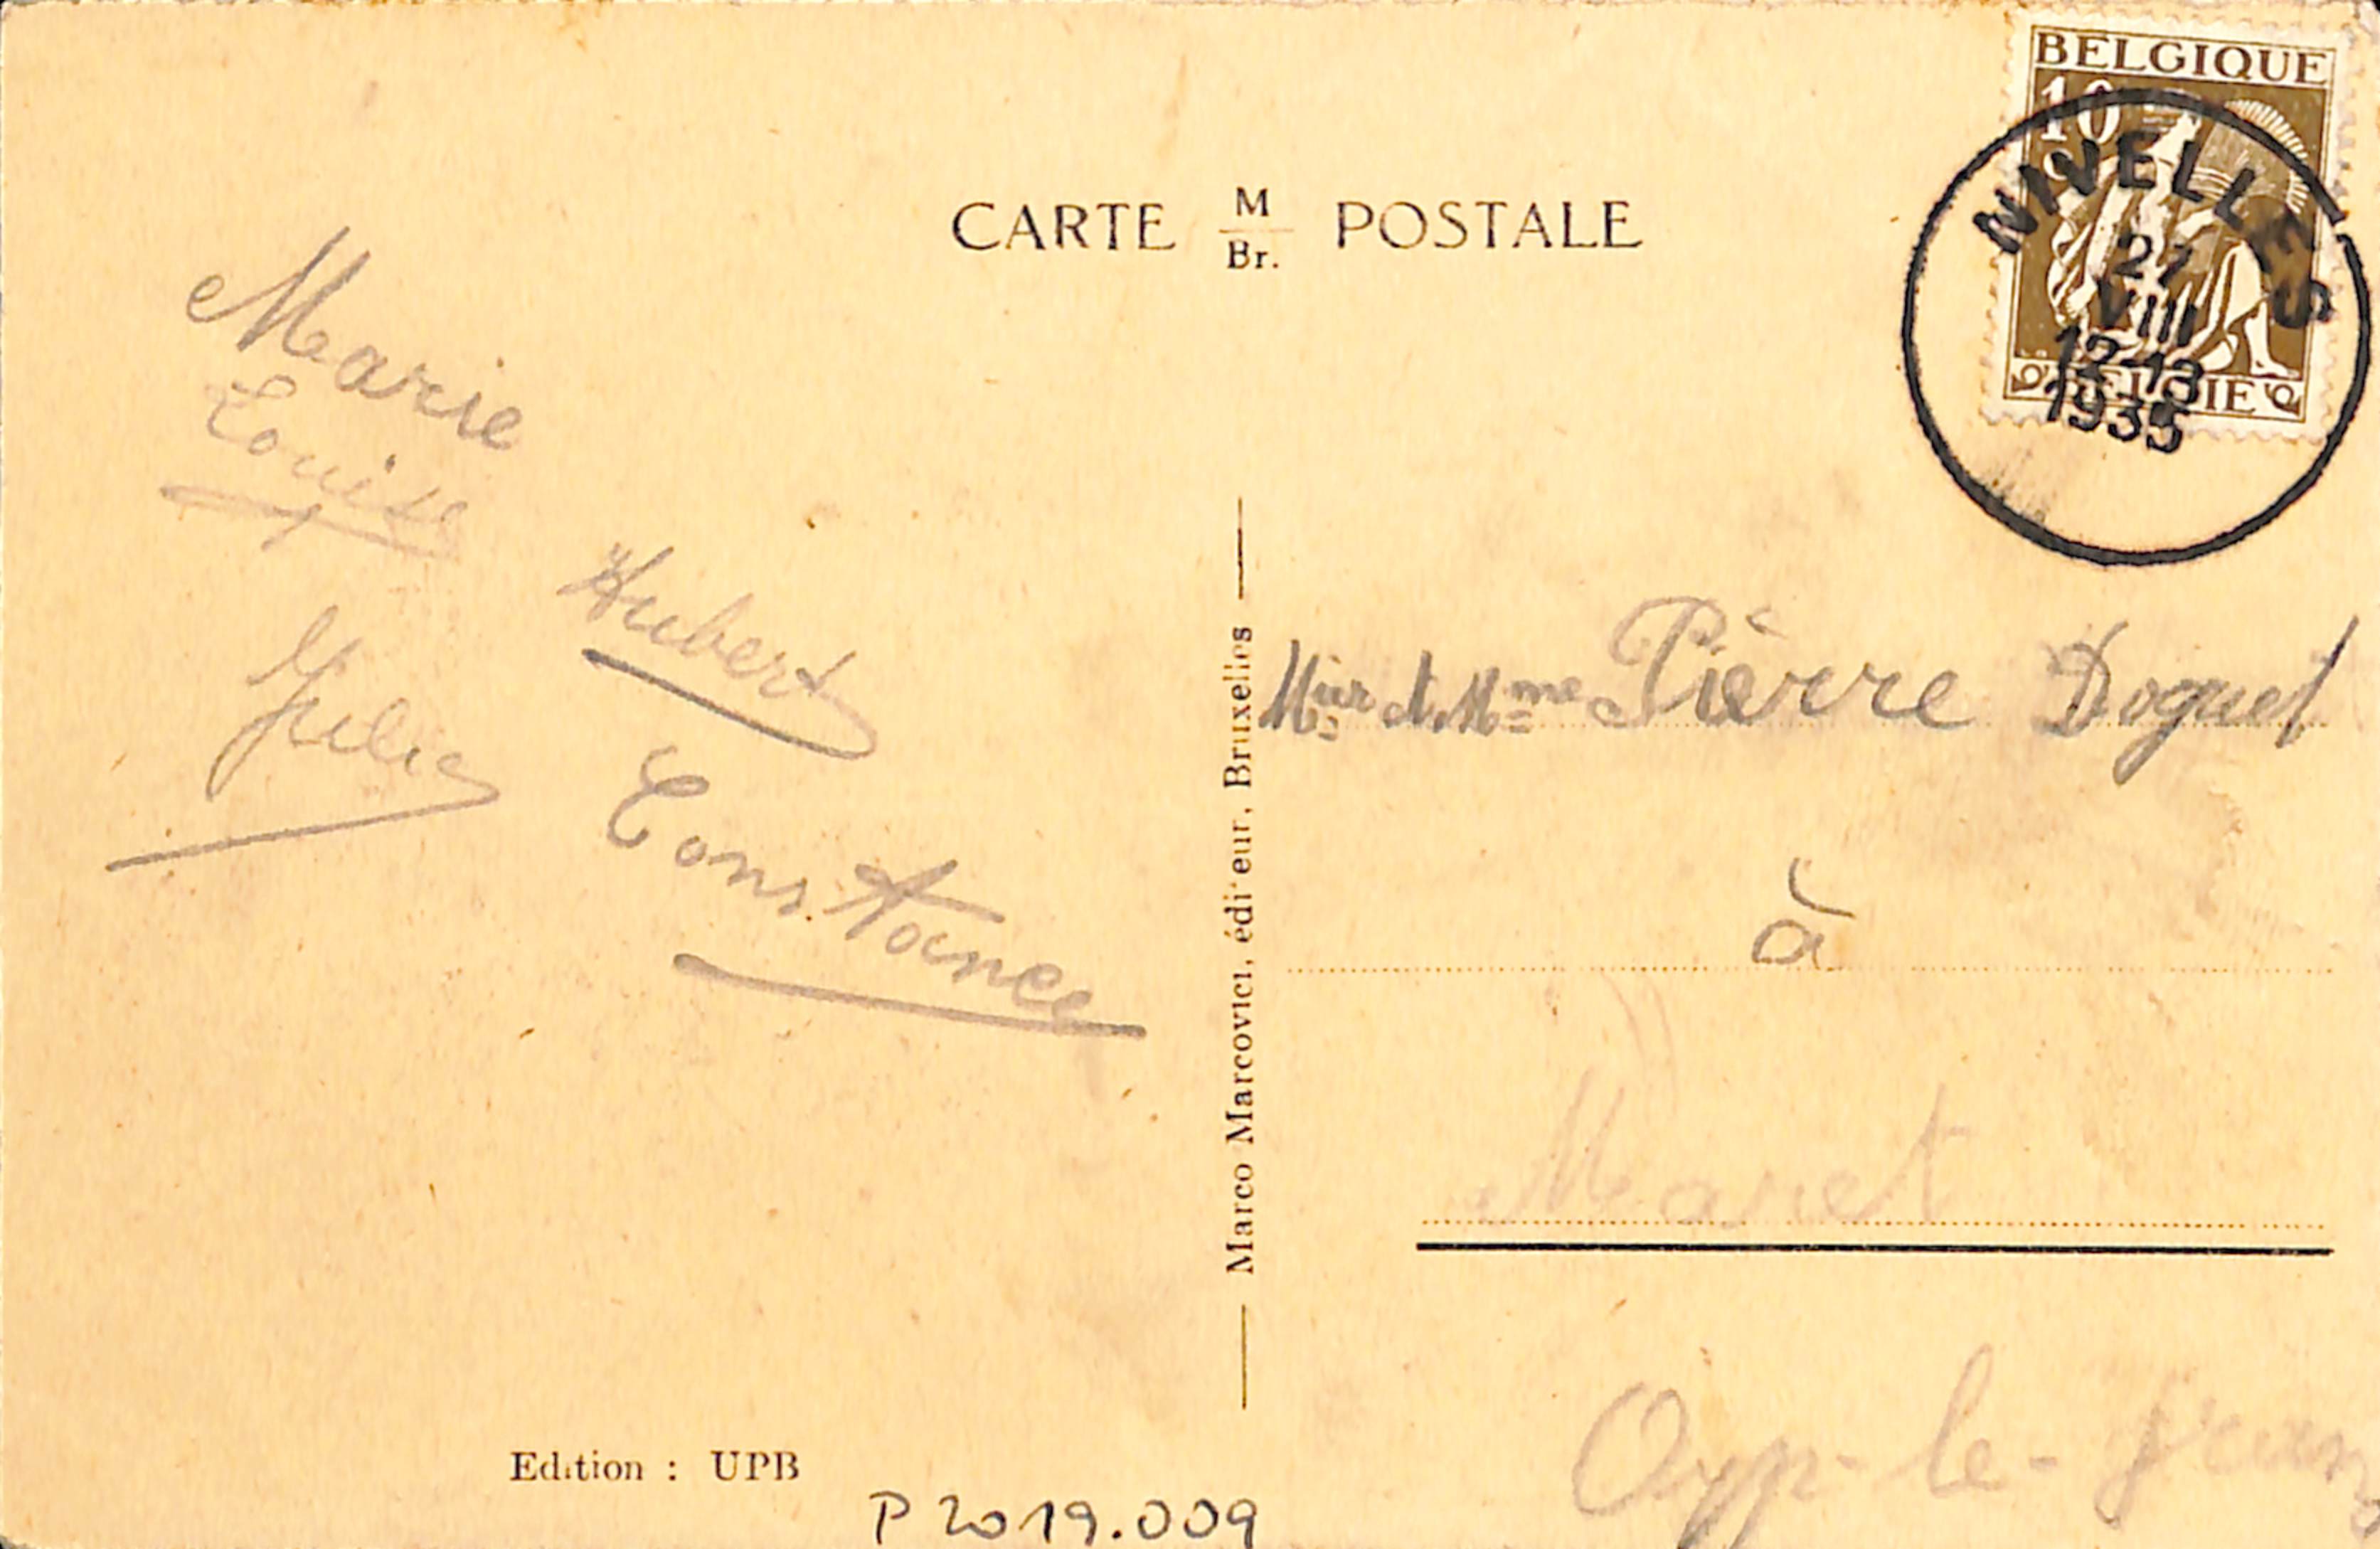 CARTE M Br. POSTALE
BELGIQUE
10 c
BELGIE
NIVELLES
VIII
12-13
1935
Marie
Louise
Hubert
Julia
Constance
Marco Marcovici, éditeur, Bruxelles
Mieur et Mme Pièrre Doguet
à
Maret
Orp-le-gran
Edition : UPB
P2019.009